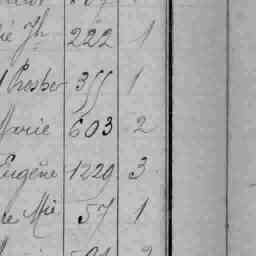 ié Jh 222 1
Prosper 355 1
Marie 603 2
Eugène 1229 3
re Mie 57 1